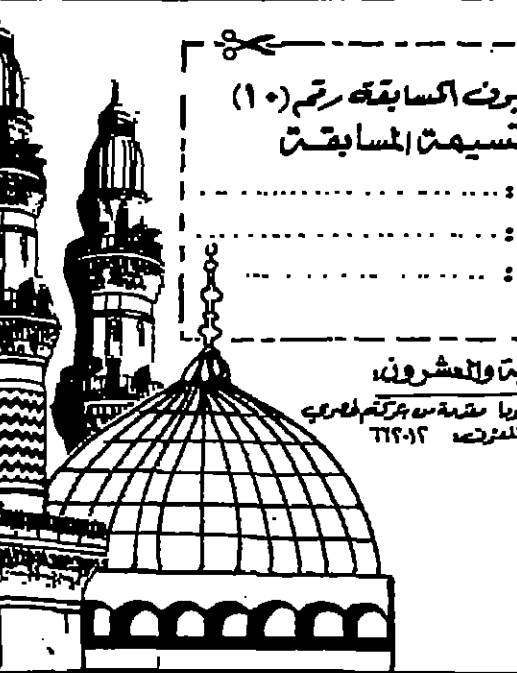 بون المسابقة رقم (١٠)
قسيمة المسابقة
:
:
:
والعشرون:
مقدمة من شركة المصري
٦٦٢٠١٢